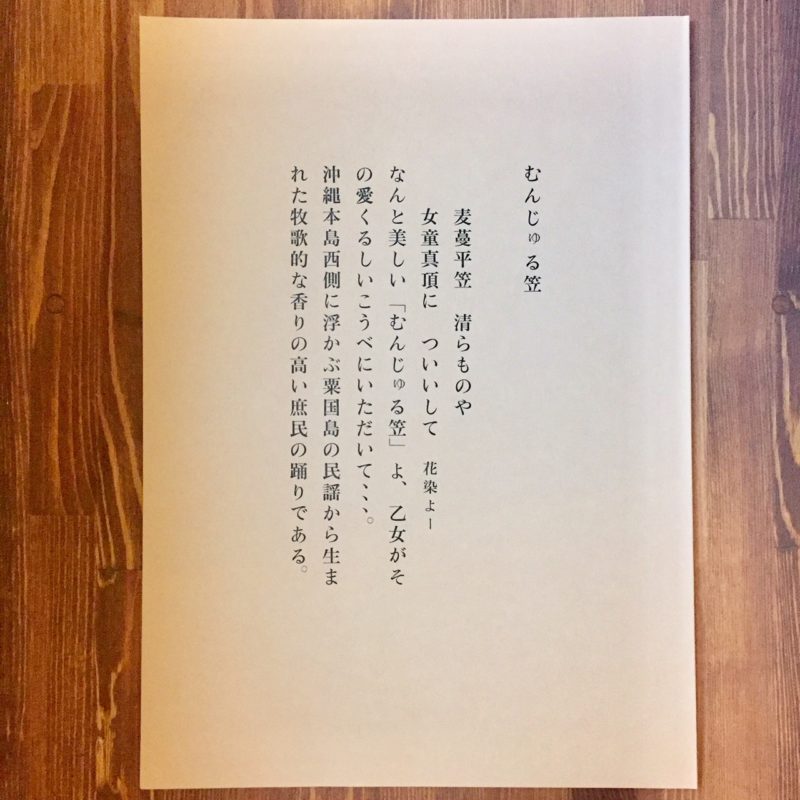 むんじゅる笠
麦蔓平笠　清らものや
女童真頂に　ついいして　花染ょー
なんと美しい「むんじゅる笠」よ、乙女がそ
の愛くるしいこうべにいただいて、、、。
沖縄本島西側に浮かぶ粟国島の民謡から生ま
れた牧歌的な香りの高い庶民の踊りである。